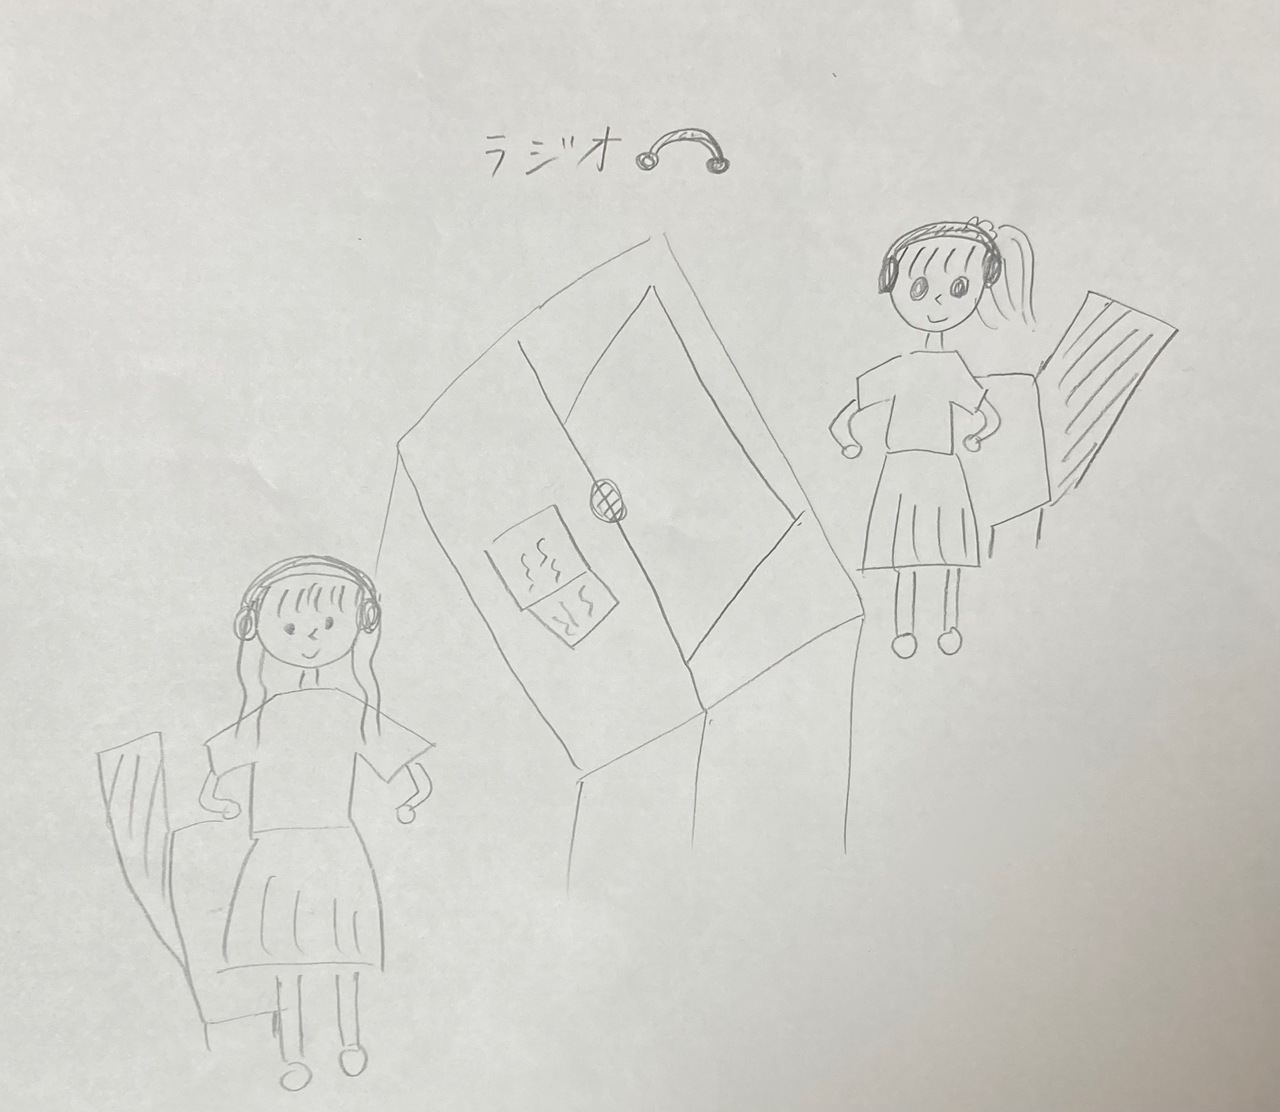 ラジオ